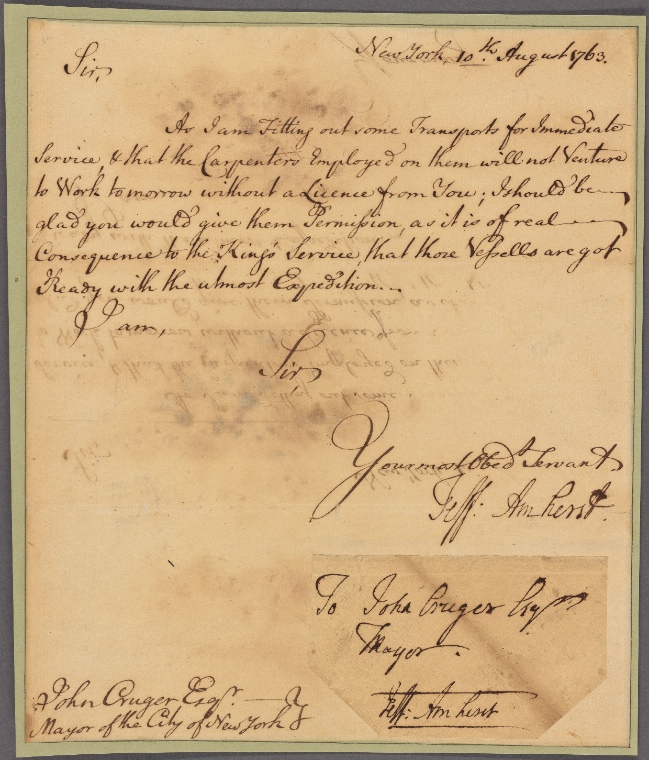 New York, 10th. August 1763.
Sir,
As I am Fitting out some Transports for Immediate
Service, & that the Carpenters Employed on them will not Venture
to Work tomorrow without a Licence from You; I should be
glad you would give them Permission, as it is of real
Consequence to the King's Service, that those Vessells are got
Ready with the utmost Expedition.
I am,
Sir,
Your most Obedt. Servant
Jeff: Amherst.
To John Cruger Esqr
Mayor.
Jeff: Amherst
John Cruger Esqr.
Mayor of the City of New York